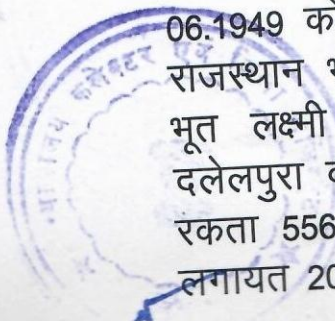 06.1949 को
राजस्थान
भूत लक्ष्मी
दलेलपुरा
रकता 556
लगायत 20